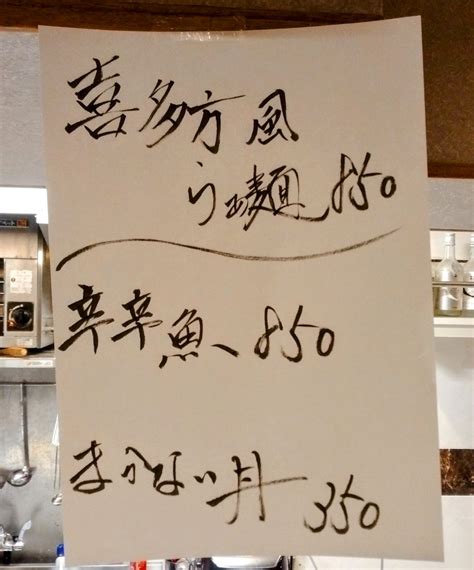 喜多方風
らぁ麺 850
辛辛魚 850
まかない丼 350